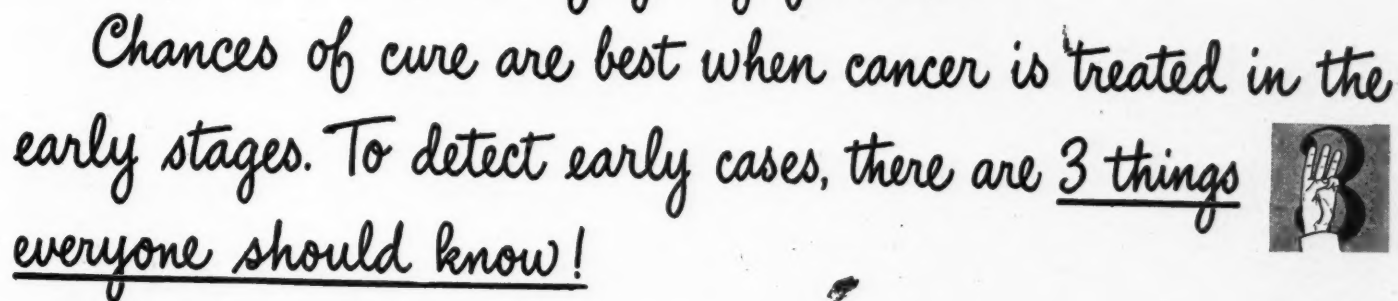 Chances of cure are best when cancer is treated in the
early stages. To detect early cases, there are 3 things
everyone should know!
3